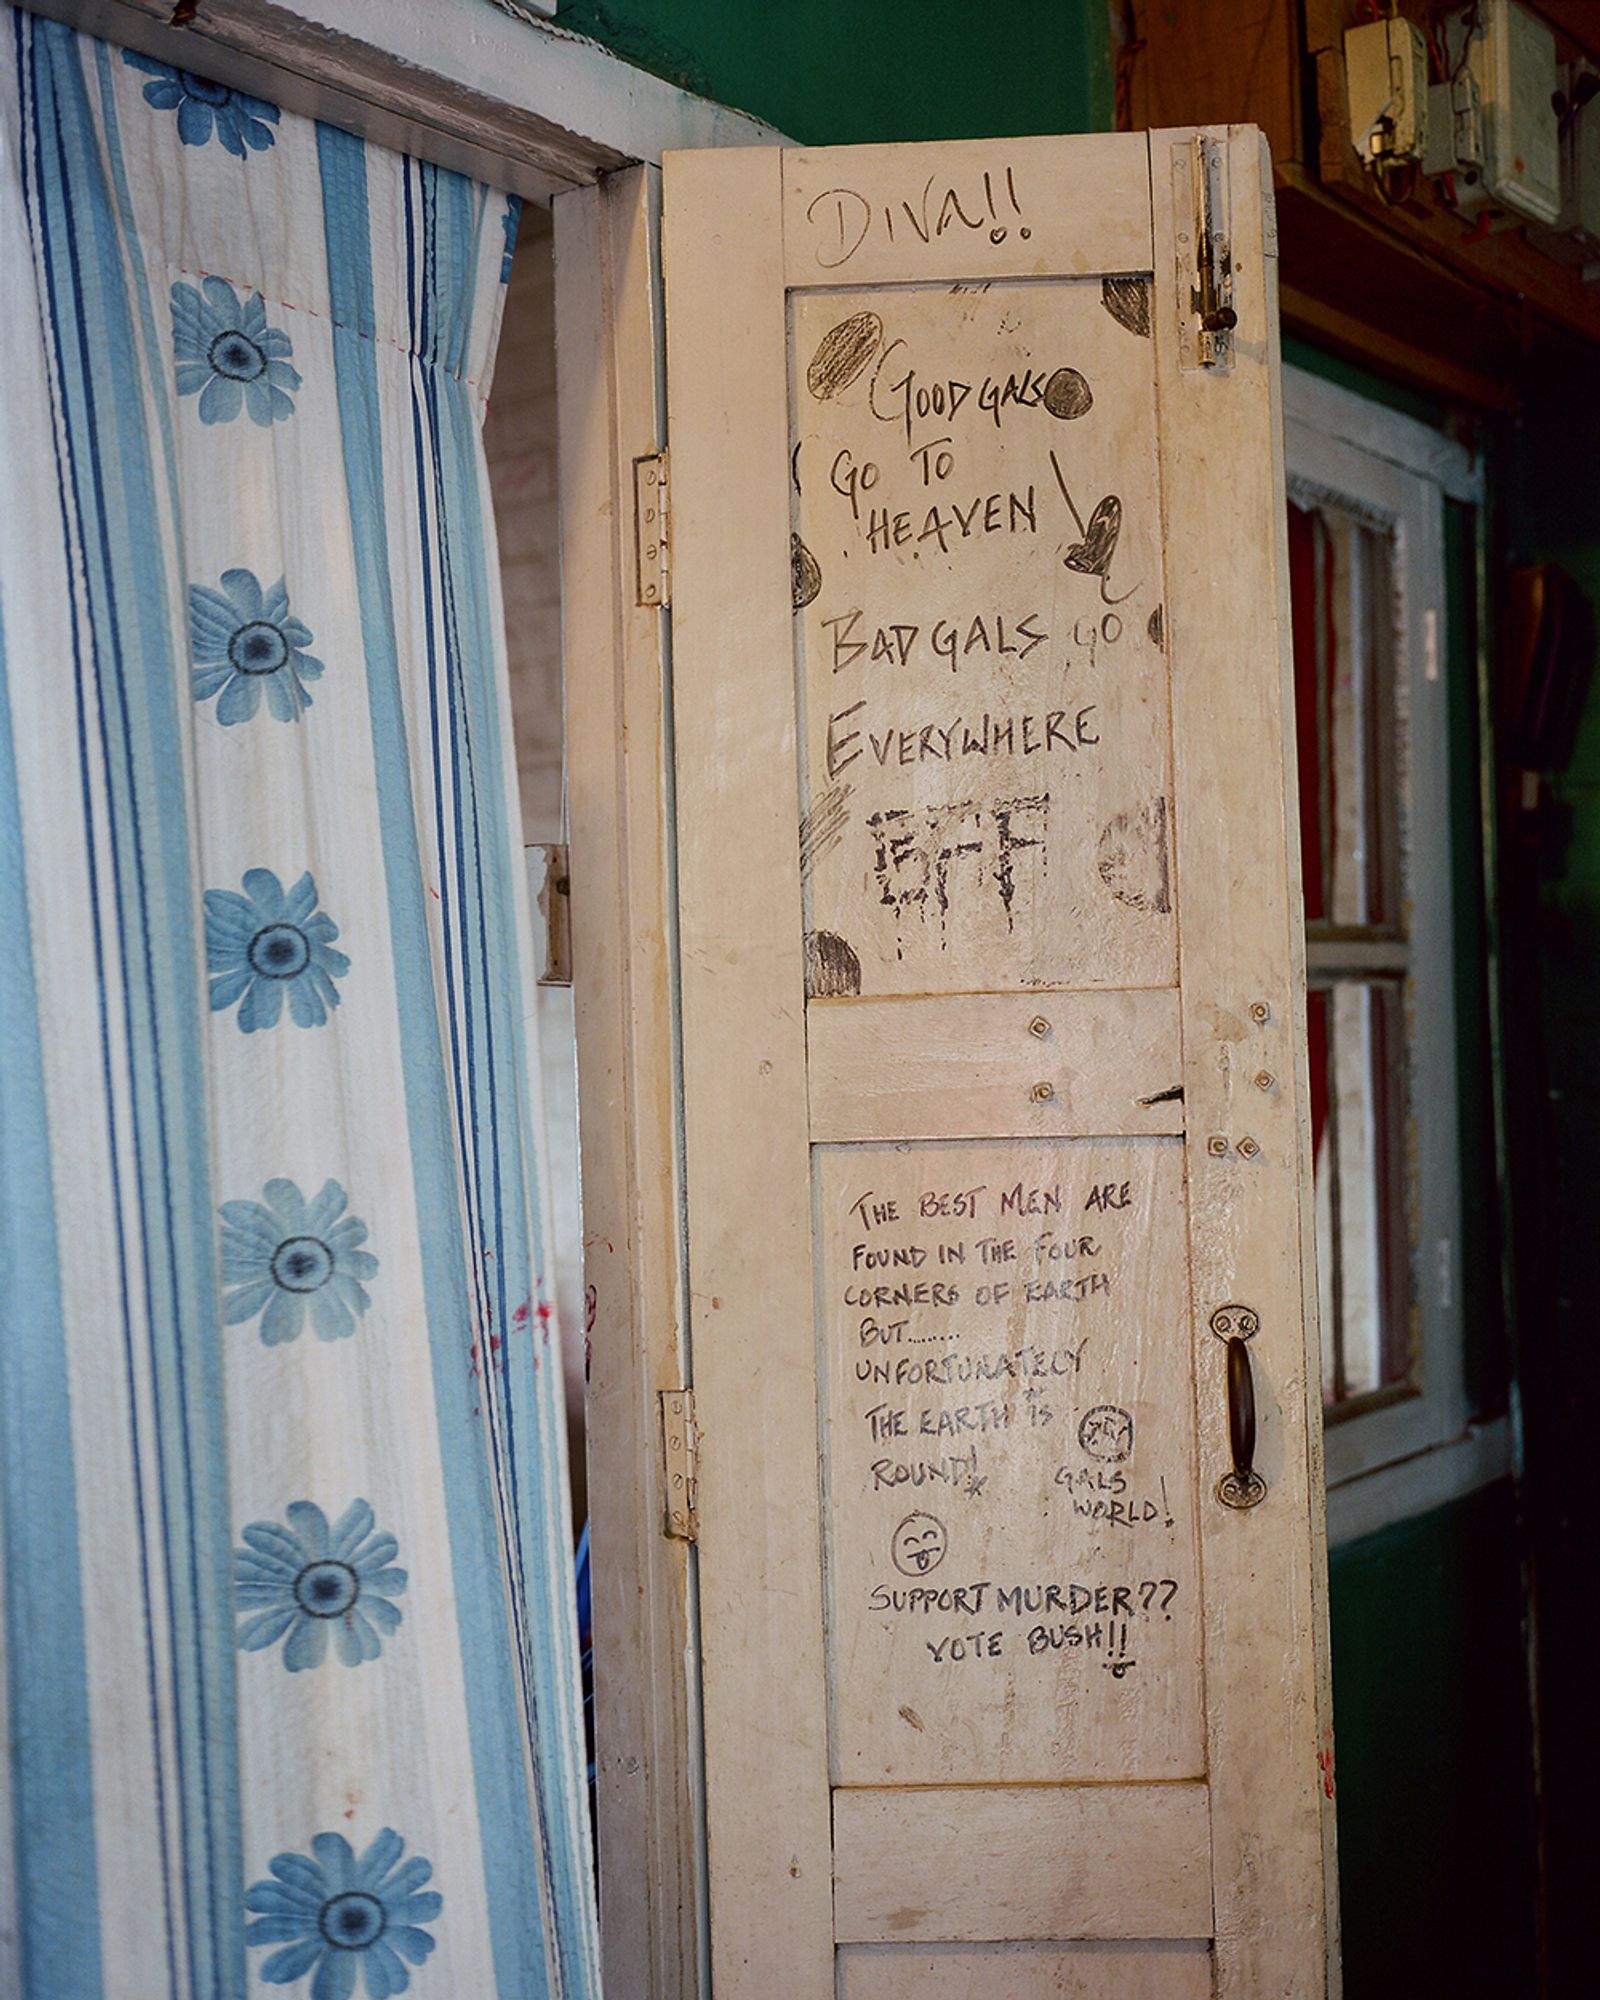 DIVA!!
GOOD GALS
GO TO
HEAVEN
BAD GALS GO
EVERYWHERE
THE BEST MEN ARE
FOUND IN THE FOUR
CORNERS OF EARTH
BUT.........
UNFORTUNATELY
THE EARTH IS
ROUND!
GALS
WORLD!
SUPPORT MURDER??
VOTE BUSH!!